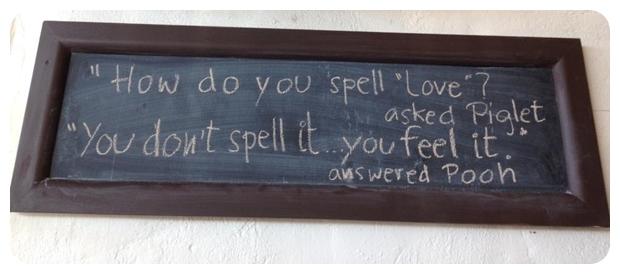 "How do you spell "Love"?
asked Piglet
"You don't spell it...you feel it."
answered Pooh